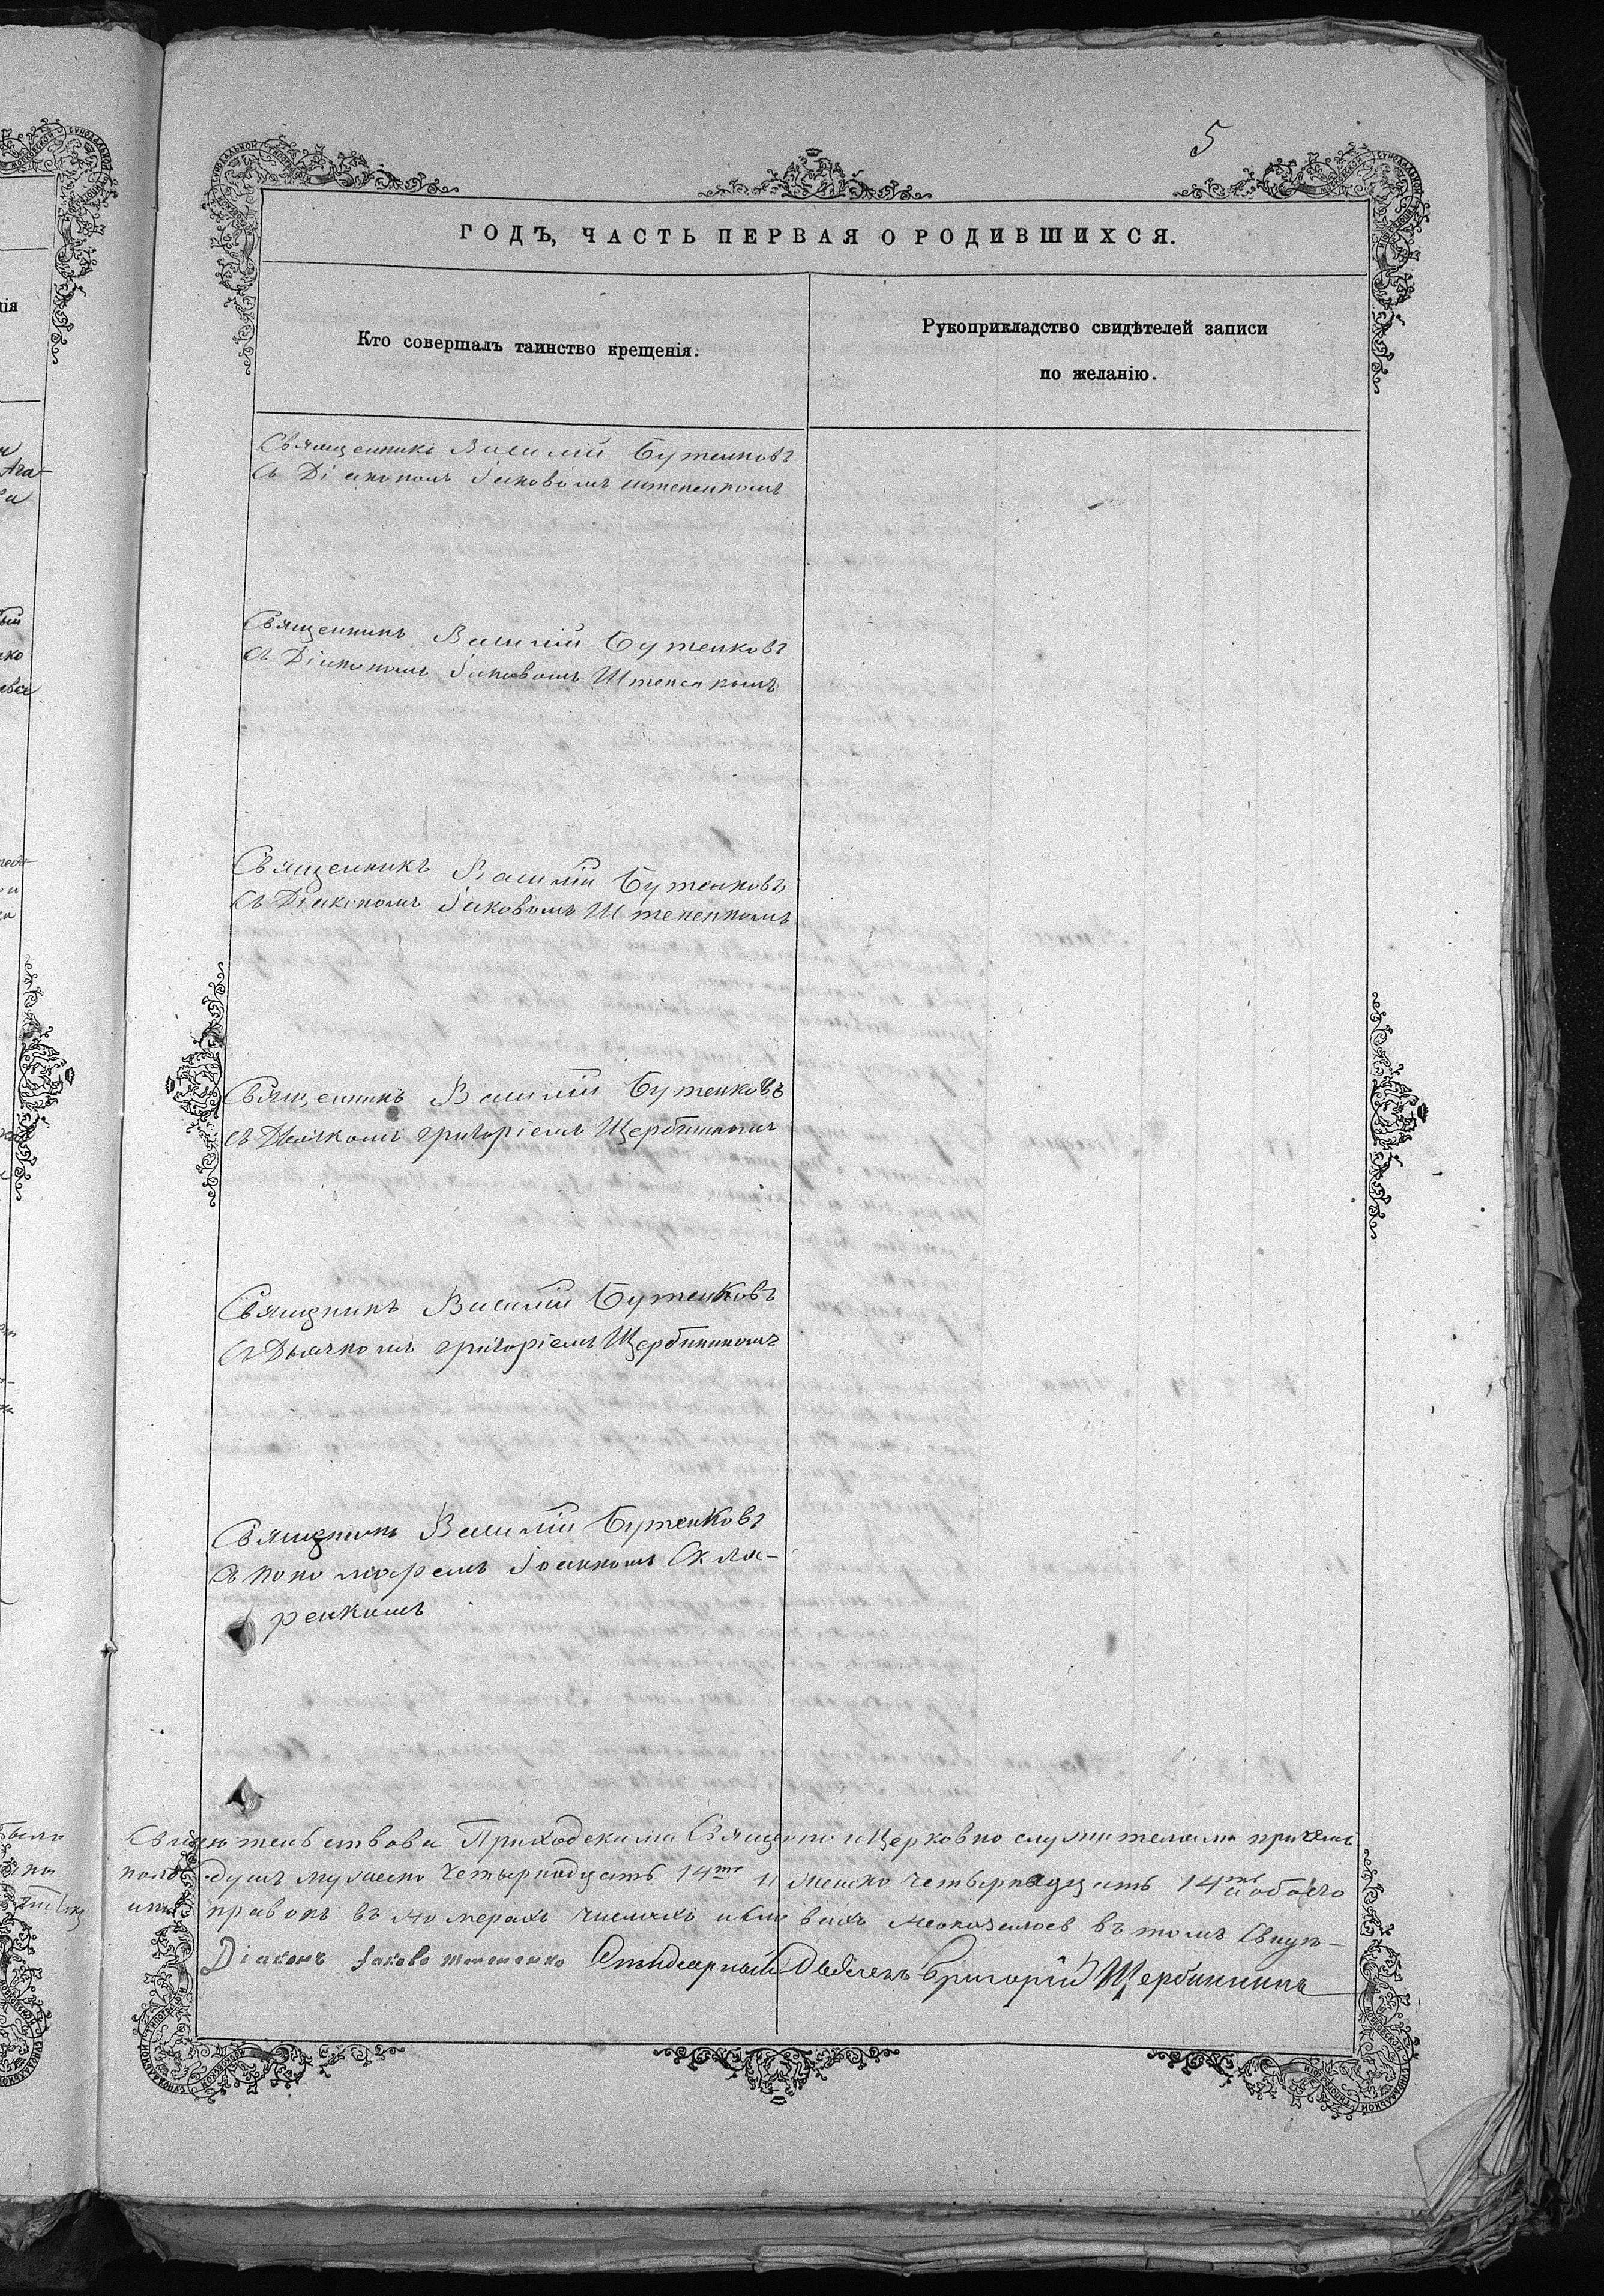 5
ГОДЪ, ЧАСТЬ ПЕРВАЯ О РОДИВШИХСЯ.
Кто совершалъ таинство крещенія.
Рукоприкладство свидѣтелей записи
по желанію.
Священникъ Василій Бутенковъ
съ Діакономъ Іаковомъ штепенкомъ
Священникъ Василій Бутенковъ
съ Діакономъ Іаковомъ Штепенкомъ
Священникъ Василій Бутенковъ
съ Діакономъ Іаковомъ Штепенкомъ
Священникъ Василій Бутенковъ
съ Дьячкомъ григоріемъ Щербининомъ
Священикъ Василій Бутенковъ
съ Дьячкомъ григоріемъ Щербининомъ
Священикъ Василій Бутенковъ
съ пономаремъ Іоанномъ Скля-
ренкомъ
Приходскими Священно и Церковно служителями
душъ мужеско четырнадцать 14ть и женско четырнадцать 14ть и обоего
въ номерахъ числахъ въ томъ
Діаконъ Іаковъ штепенко Григорій Щербининъ